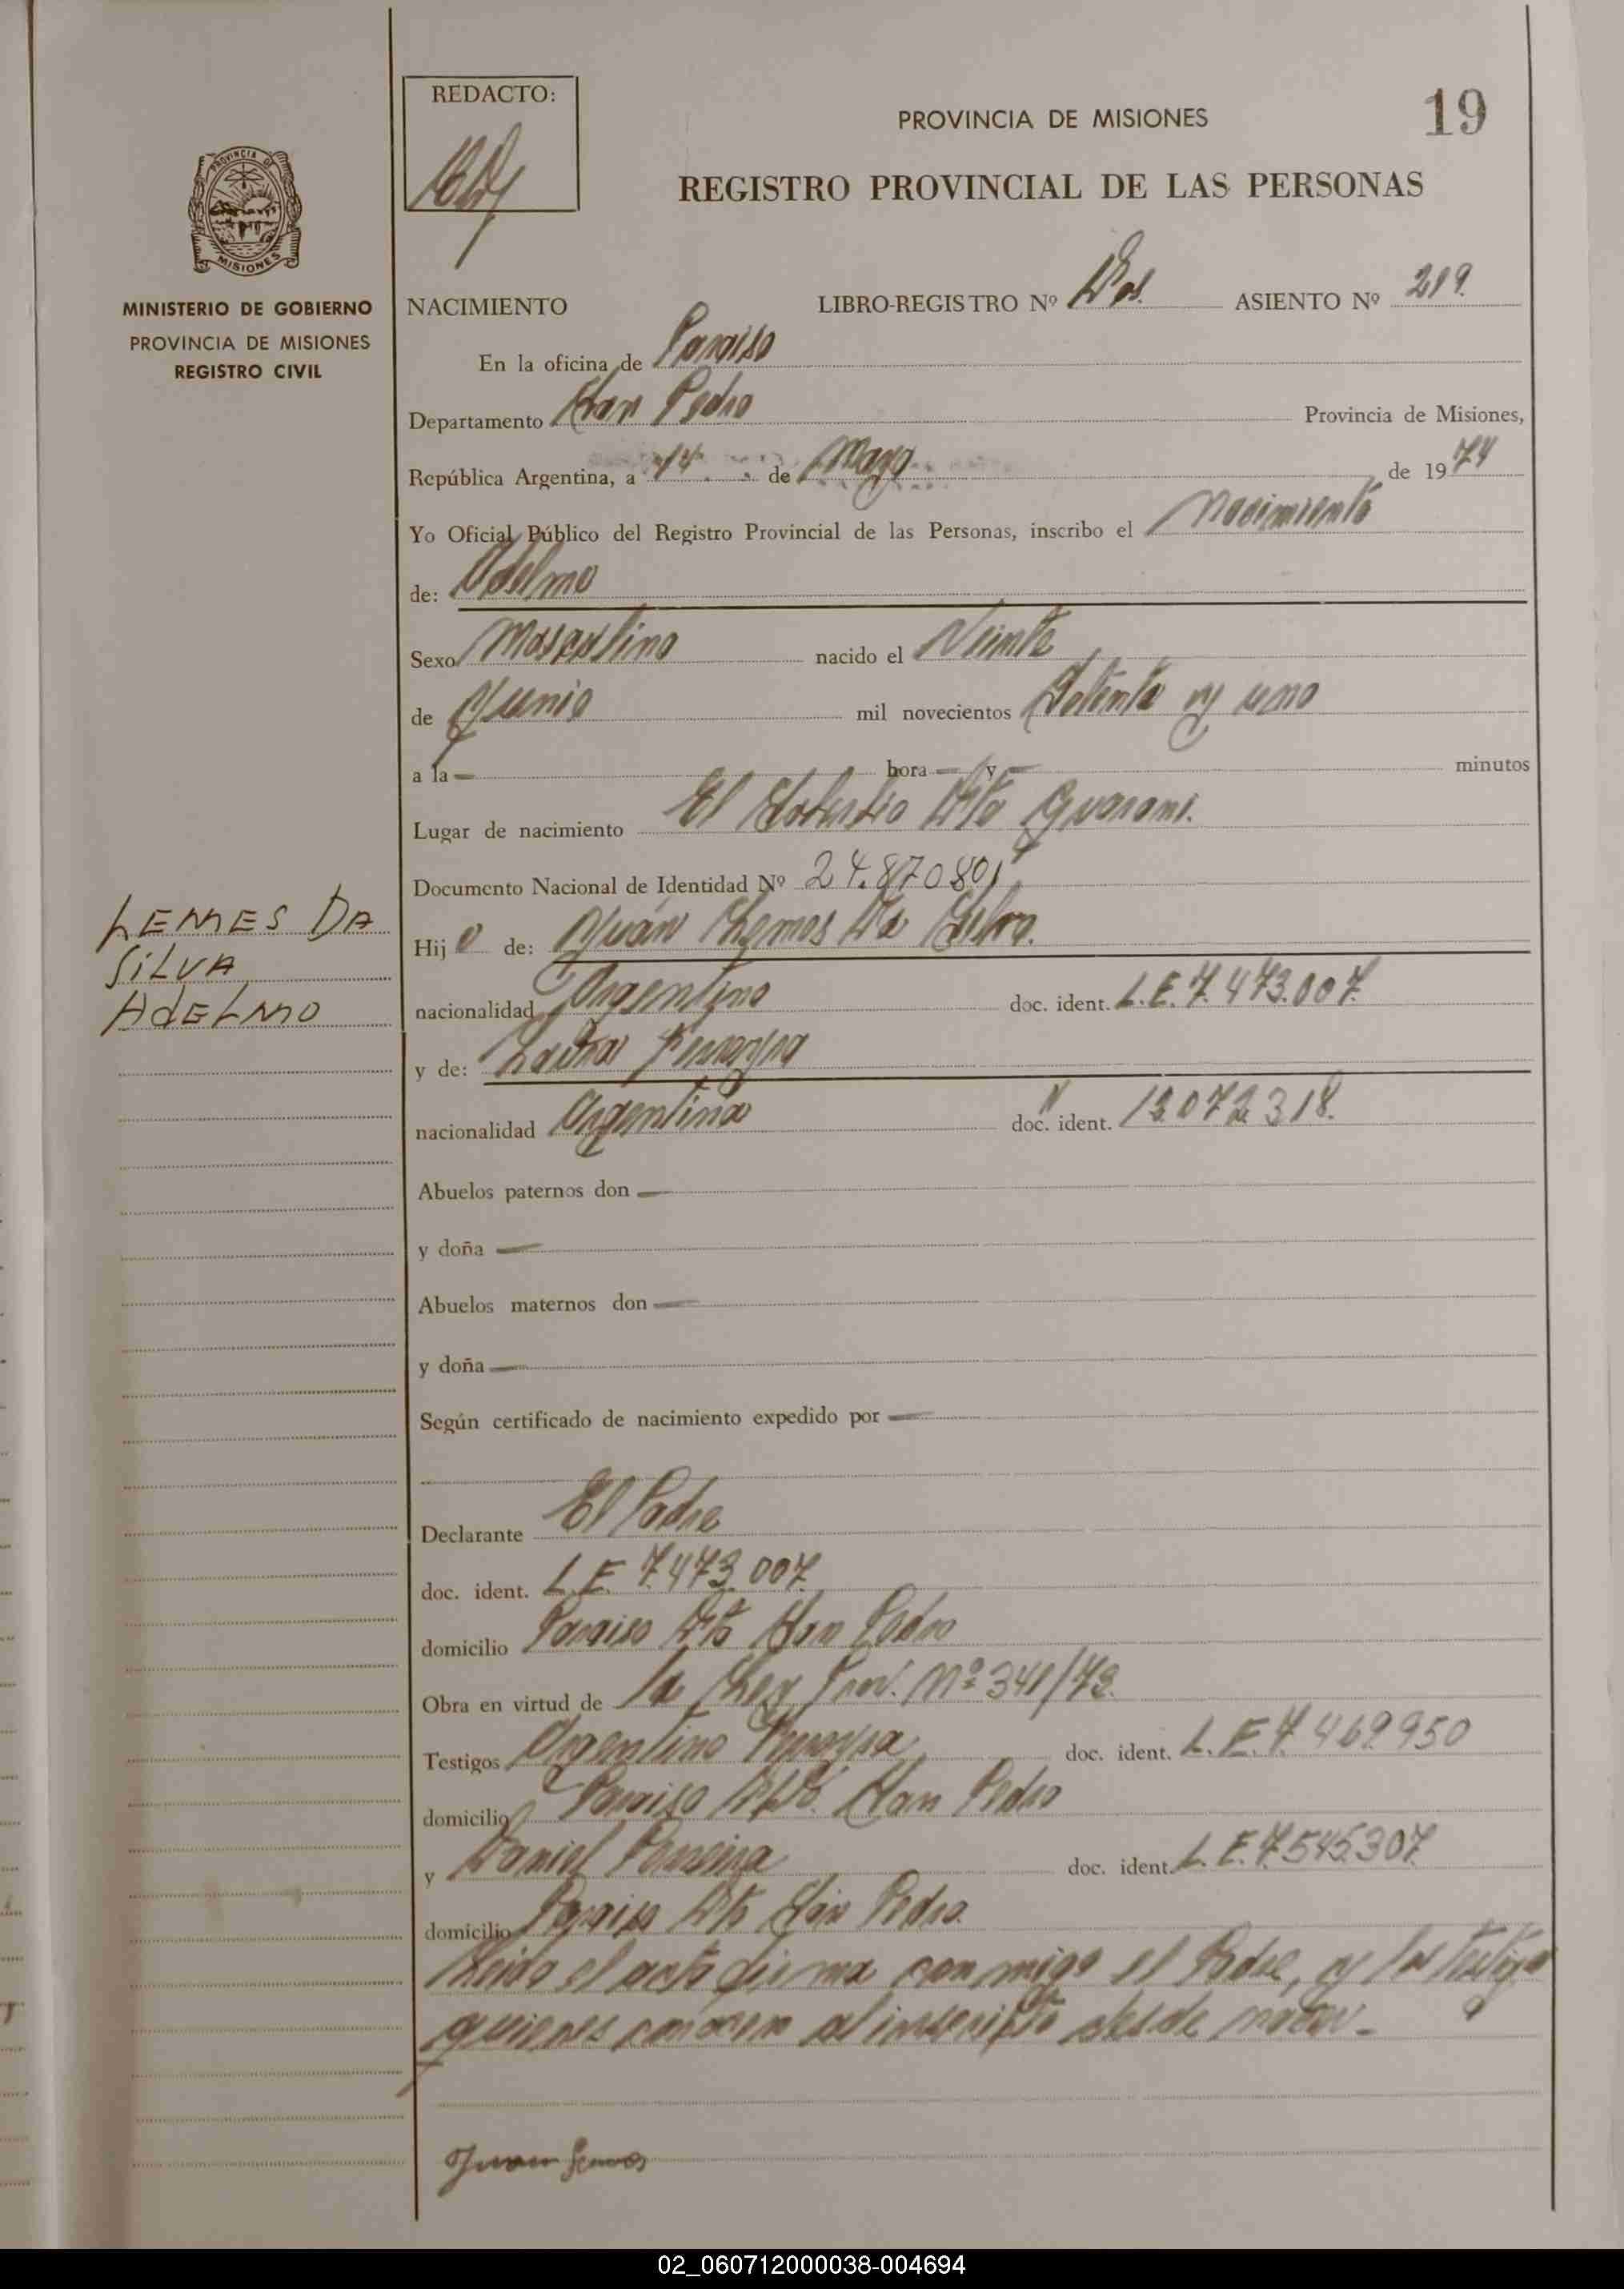 REDACTO:
PROVINCIA DE MISIONES
19
REGISTRO PROVINCIAL DE LAS PERSONAS
PROVINCIA DE
MISIONES
MINISTERIO DE GOBIERNO
PROVINCIA DE MISIONES
REGISTRO CIVIL
NACIMIENTO LIBRO-REGISTRO Nº Dos. ASIENTO Nº 219.
En la oficina de Paraiso
Departamento San Pedro Provincia de Misiones,
República Argentina, a 14 de Mayo de 1974
Yo Oficial Público del Registro Provincial de las Personas, inscribo el Nacimiento
de: Adelmo
Sexo Masculino nacido el Veinte
de Junio mil novecientos Setenta y uno
a la — hora — y — minutos
Lugar de nacimiento El Soberbio Dto Guarani.
Documento Nacional de Identidad Nº 24.870801
LEMES DA
SILVA
ADELMO
Hijo de: Juán Lemos Da Silva.
nacionalidad Argentino doc. ident. L.E. 7.473.007.
y de: Laura
nacionalidad Argentina doc. ident. 13072318.
Abuelos paternos don —
y doña —
Abuelos maternos don —
y doña —
Según certificado de nacimiento expedido por —
Declarante El Padre
doc. ident. L.E. 7.473.007.
domicilio Paraiso Dto San Pedro
Obra en virtud de la Ley Prov. Nº 341/73.
Testigos Argentino doc. ident. L.E. 7.469950
domicilio Paraiso Dto. San Pedro
y Daniel Pereira doc. ident. L.E. 7.545.307.
domicilio Paraiso Dto San Pedro.
Leida el acta firma conmigo el Padre, y los testigos
quienes conocen al inscripto desde nacer.-
Juan Lemos
02_060712000038-004694